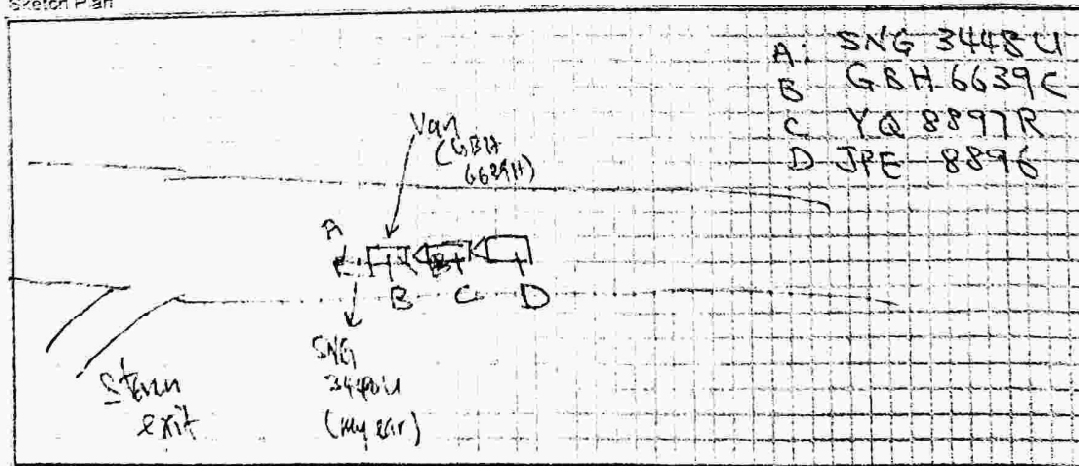 Sketch Plan
A: SNG 3448U
B GBH 6639C
C YQ 8897R
D JPE 8896
Van
(GBH
6639H)
A
B C D
SNG
3448U
(my car)
exit